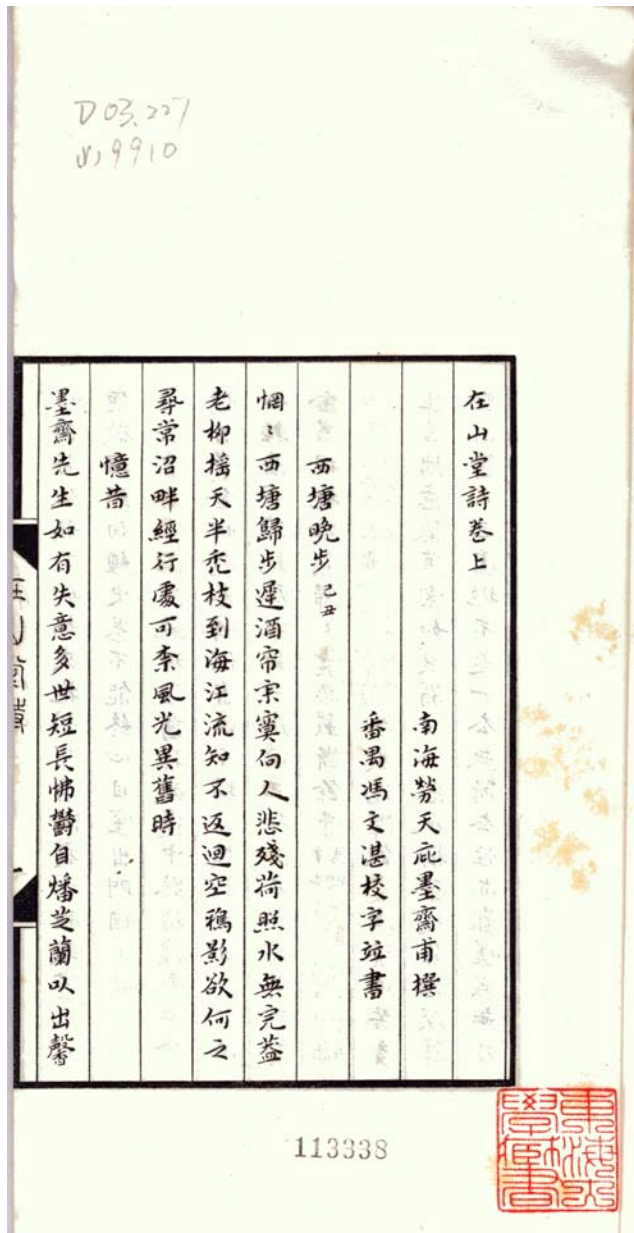 D03.227
9910
在山堂詩卷上
南海勞天庇墨齋甫撰
番禺馮文湛校字竝書
西塘晚步 己丑
惘〻西塘歸步遲酒帘寂寞向人悲殘荷照水無完葢
老柳搖天半禿枝到海江流知不返迴空鴉影欲何之
尋常沼畔經行處可柰風光異舊時
憶昔
墨齋先生如有失意多世短長怫鬱自燔芝蘭以出馨
113338